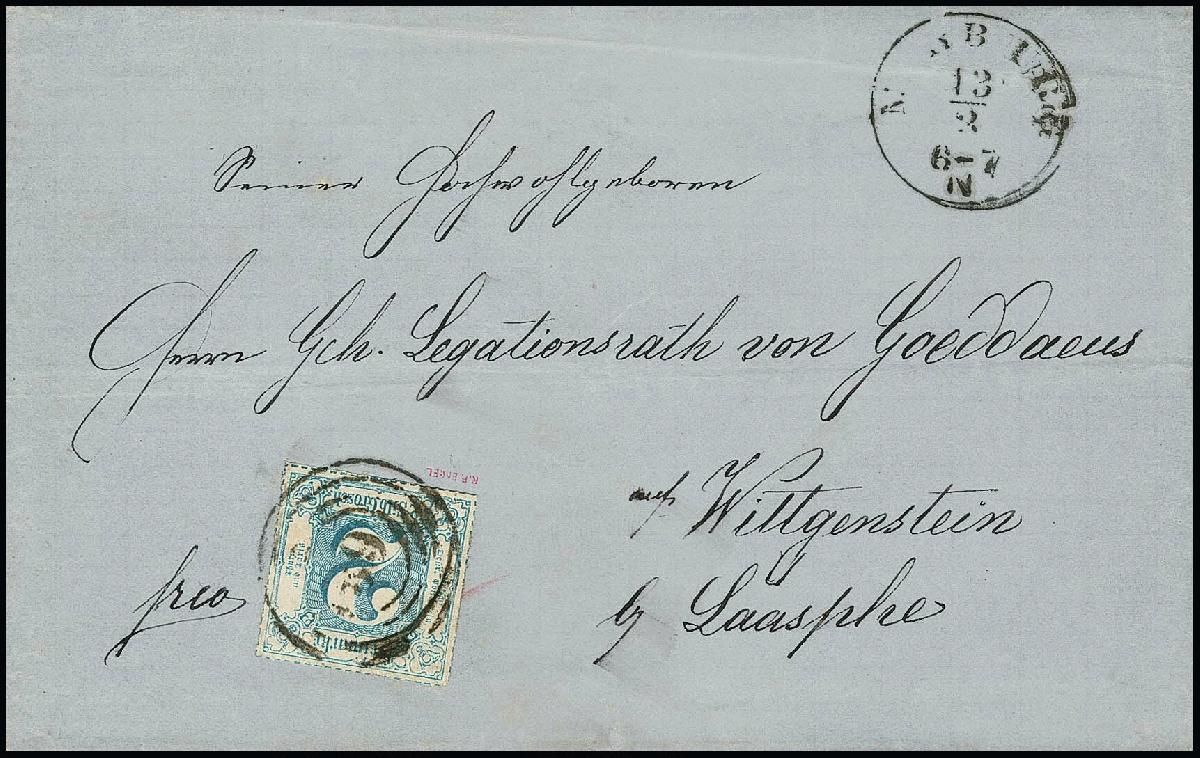 13
2
6-7
N
Seiner Hochwohlgeboren
Herrn Geh. Legationsrath von Goeddaeus
auf Wittgenstein
b/ Laasphe
frco
2